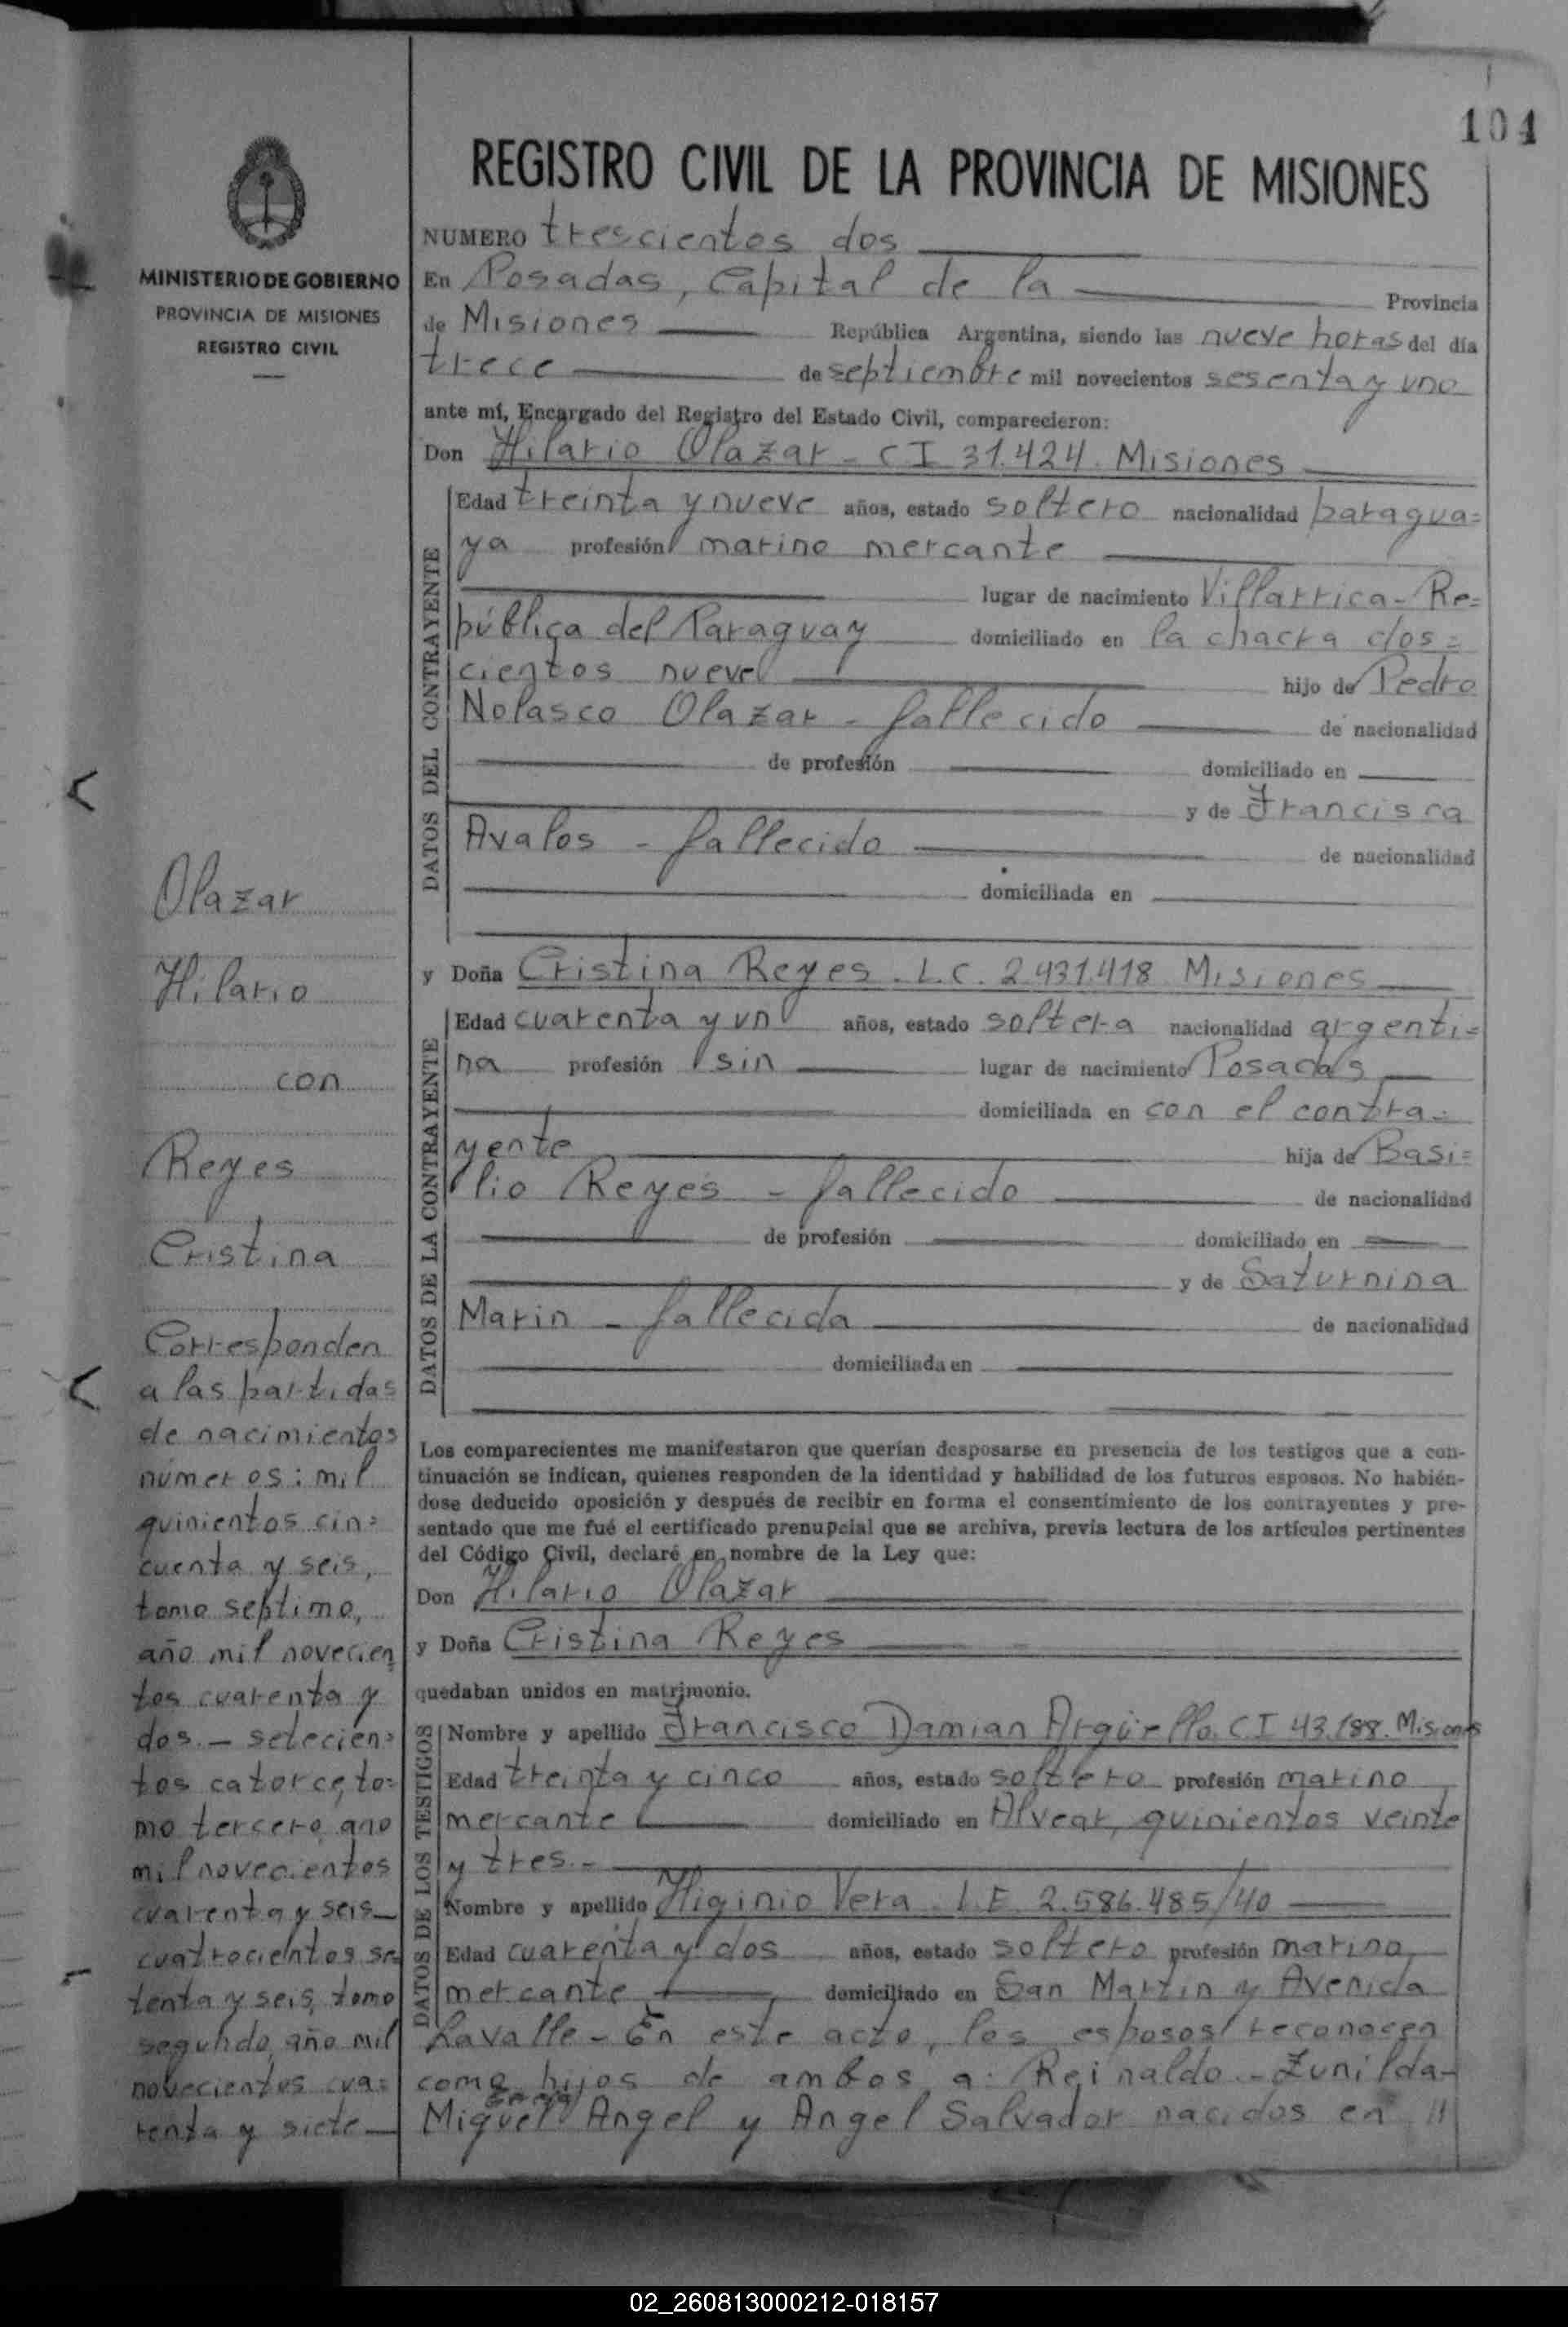 104
REGISTRO CIVIL DE LA PROVINCIA DE MISIONES
MINISTERIO DE GOBIERNO
PROVINCIA DE MISIONES
REGISTRO CIVIL
NUMERO trescientos dos
En Posadas, Capital de la Provincia
de Misiones República Argentina, siendo las nueve horas del día
trece de septiembre mil novecientos sesenta y uno
ante mí, Encargado del Registro del Estado Civil, comparecieron:
Don Hilario Olazar - CI 31.424. Misiones
DATOS DEL CONTRAYENTE
Edad treinta y nueve años, estado soltero nacionalidad paragua=
ya profesión marino mercante
lugar de nacimiento Villarrica - Re=
pública del Paraguay domiciliado en la chacra dos=
cientos nueve hijo de Pedro
Nolasco Olazar - fallecido de nacionalidad
de profesión domiciliado en
y de Francisca
Avalos - fallecido de nacionalidad
domiciliada en
y Doña Cristina Reyes. L.C. 2.431.418 Misiones
DATOS DE LA CONTRAYENTE
Edad cuarenta y un años, estado soltera nacionalidad argenti=
na profesión sin lugar de nacimiento Posadas
domiciliada en con el contra=
yente hija de Basi=
lio Reyes - fallecido de nacionalidad
de profesión domiciliado en
y de Saturnina
Marin - fallecida de nacionalidad
domiciliada en
Los comparecientes me manifestaron que querían desposarse en presencia de los testigos que a con-
tinuación se indican, quienes responden de la identidad y habilidad de los futuros esposos. No habién-
dose deducido oposición y después de recibir en forma el consentimiento de los contrayentes y pre-
sentado que me fué el certificado prenupcial que se archiva, previa lectura de los artículos pertinentes
del Código Civil, declaré en nombre de la Ley que:
Don Hilario Olazar
y Doña Cristina Reyes
quedaban unidos en matrimonio.
DATOS DE LOS TESTIGOS
Nombre y apellido Francisco Damian Argüello. CI 43.188. Misiones
Edad treinta y cinco años, estado soltero profesión marino
mercante domiciliado en Alvear, quinientos veinte
y tres.-
Nombre y apellido Higinio Vera. L.E. 2.586.485/40
Edad cuarenta y dos años, estado soltero profesión marino
mercante domiciliado en San Martin y Avenida
Lavalle - En este acto, los esposos reconocen
como hijos de ambos a: Reinaldo - Zunilda-
Miguel Angel y Angel Salvador nacidos en "
Olazar
Hilario
con
Reyes
Cristina
Corresponden
a las partidas
de nacimientos
números: mil
quinientos cin=
cuenta y seis,
tomo septimo,
año mil novecien=
tos cuarenta y
dos. - setecien=
tos catorce, to=
mo tercero, año
mil novecientos
cuarenta y seis -
cuatrocientos se
tenta y seis, tomo
segundo, año mil
novecientos cua=
renta y siete -
02_260813000212-018157